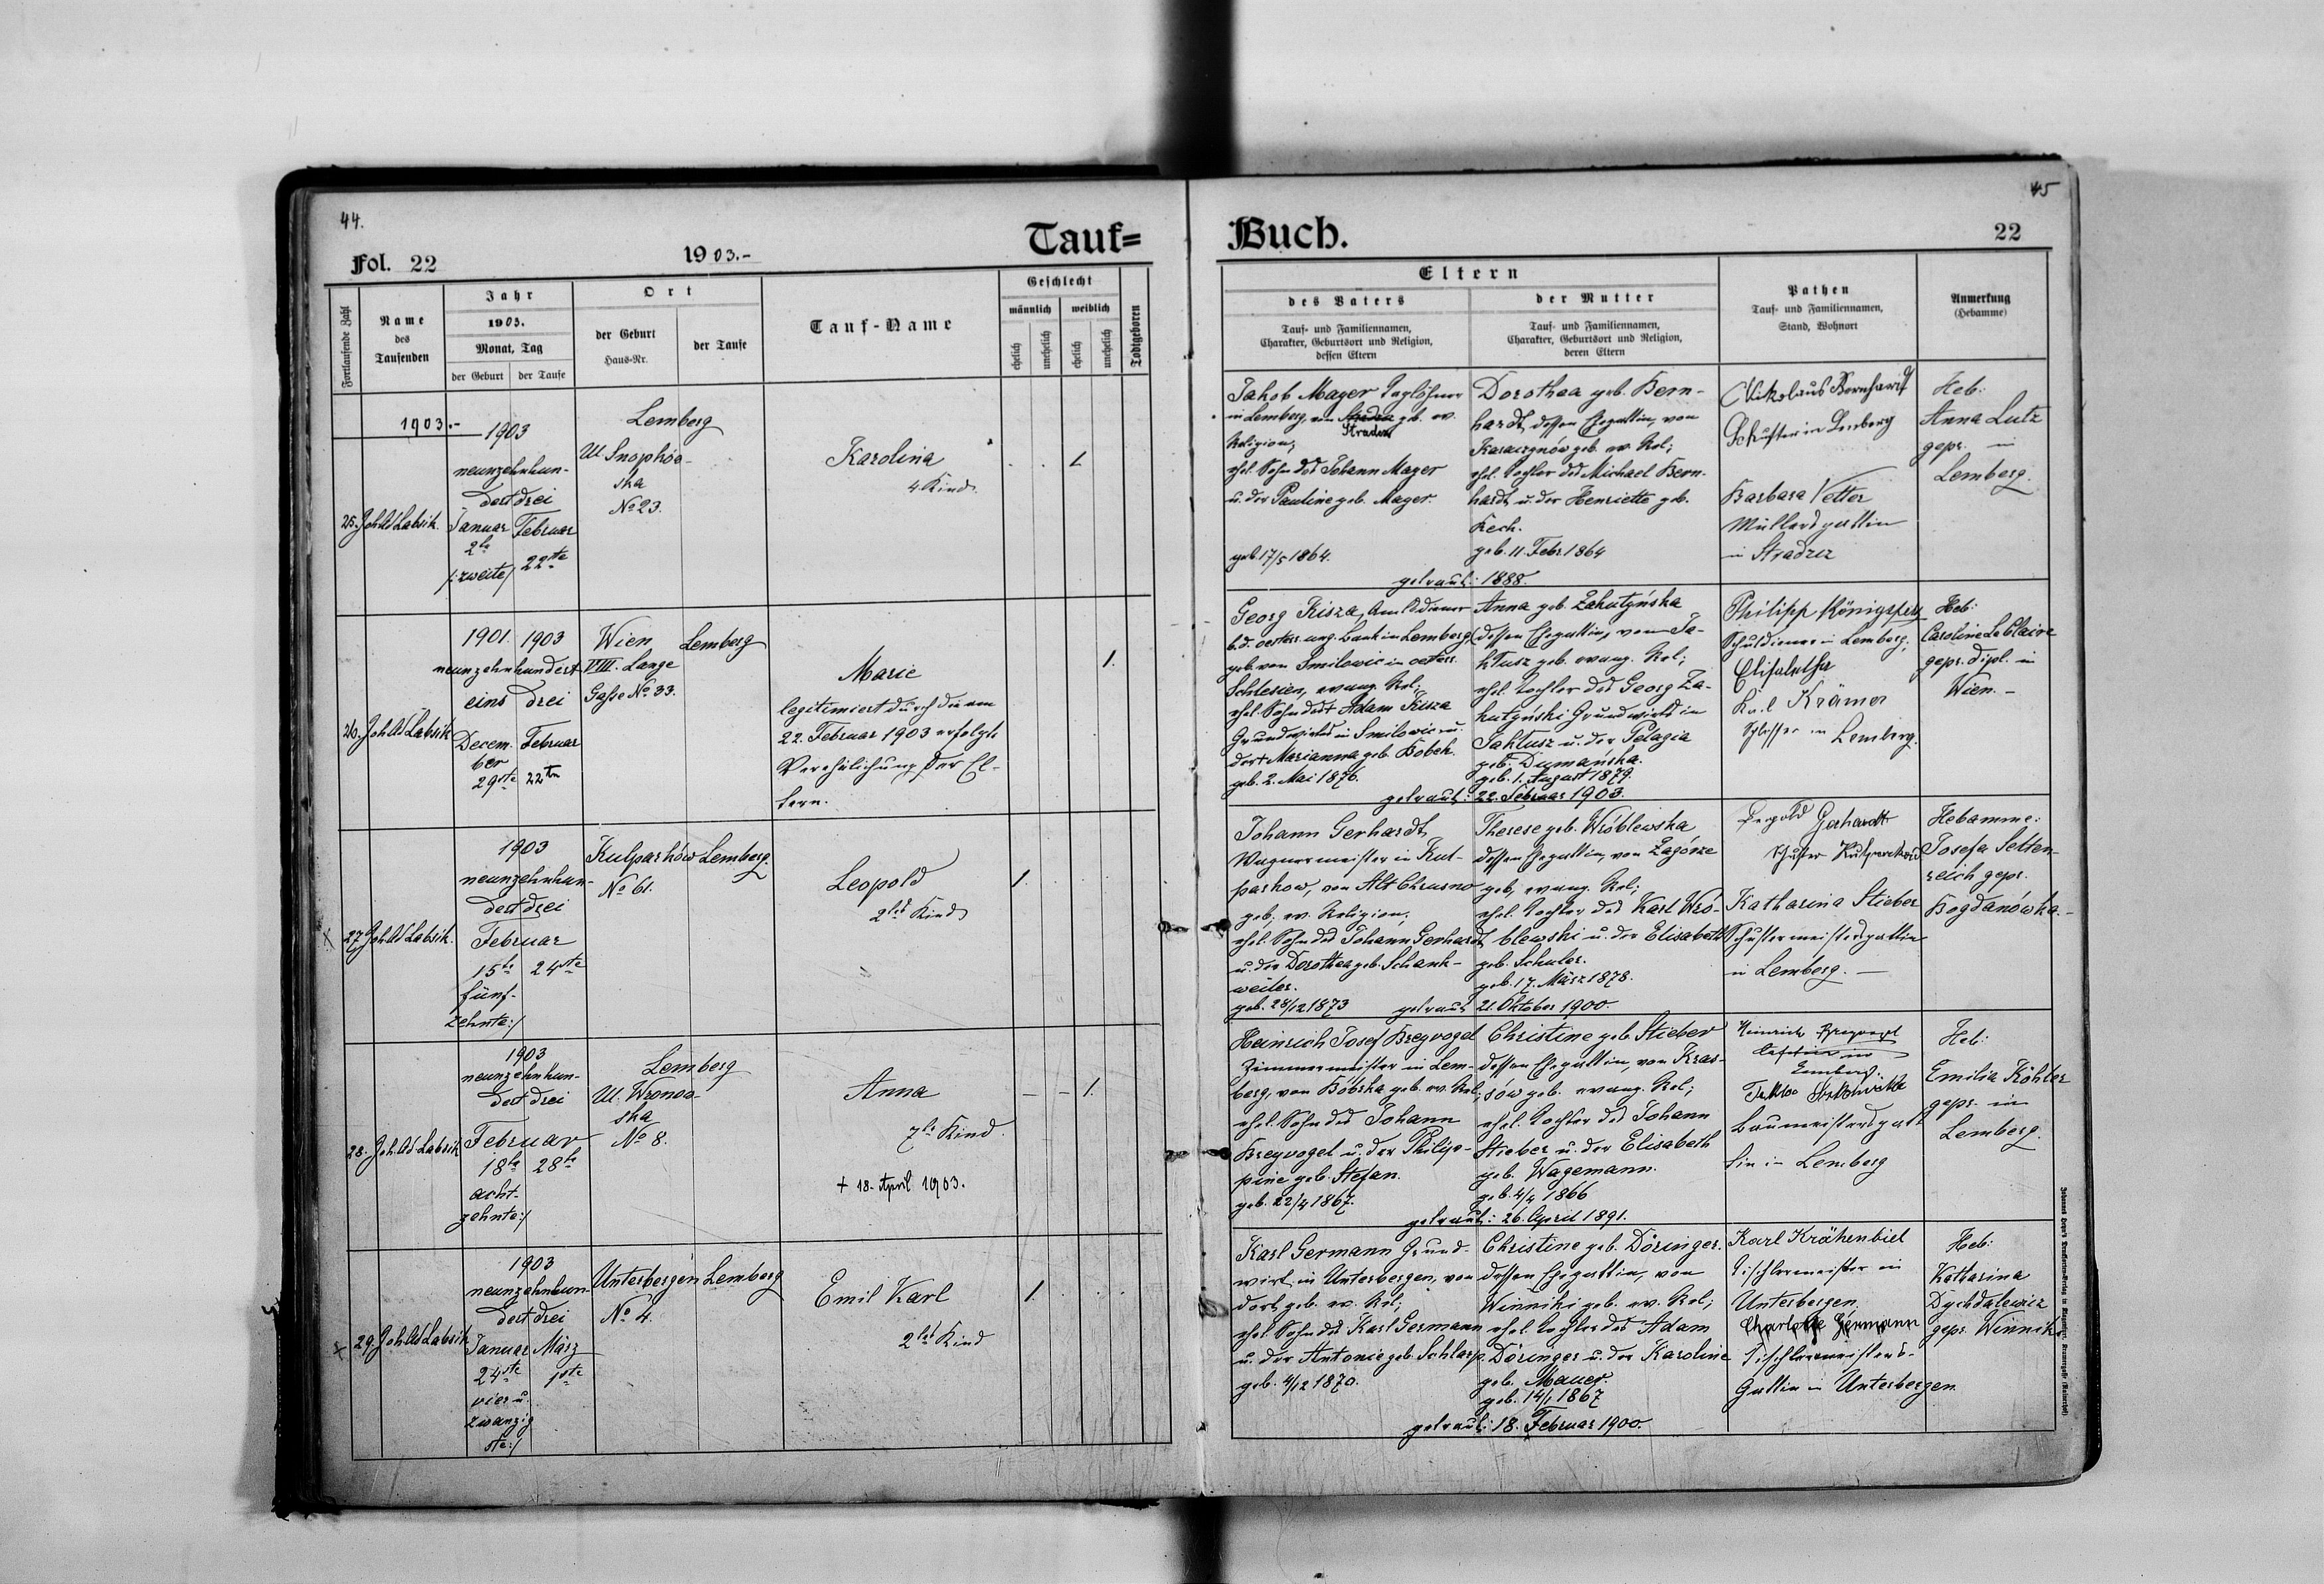 44.
45
Tauf=
Buch.
Fol. 22
1903.-
22
Fortlaufende Zahl
Name
des
Taufenden
Jahr
1903.
Monat, Tag
der Geburt
der Taufe
Ort
der Geburt
Haus-Nr.
der Taufe
Tauf-Name
Geschlecht
männlich
weiblich
ehelich
unehelich
ehelich
unehelich
Todtgeboren
Eltern
des Vaters
Tauf- und Familiennamen,
Charakter, Geburtsort und Religion,
dessen Eltern
der Mutter
Tauf- und Familiennamen,
Charakter, Geburtsort und Religion,
deren Eltern
Pathen
Tauf- und Familiennamen,
Stand, Wohnort
Anmerkung
(Hebamme)
1903.-
25.
1903
neunzehnhun-
dert drei
Januar Februar
2te
/:zweite/ 22ste
Lemberg
Ul.
ska
No 23.
Karolina
4. Kind.
1
Jakob Mager Taglöhner
in Lemberg, von geb. ev.
Stradcz
Religion,
ehel. Sohn des Johann Mager
u. der Pauline geb. Mager.
geb. 17/5 1864.
Dorothea geb. Bern-
hardt, dessen Ehegattin, von
geb. ev. Rel;
ehel. Tochter des Michael Bern-
hardt u. der Henriette geb.
Kech.
geb. 11. Febr. 1864
getraut: 1888.
Nikolaus Bernhardt
Schuster in Lemberg
Barbara Vetter
Müllersgattin
in Stradcz
Heb:
Anna Lutz
gepr. in
Lemberg.
26.
1901. 1903
neunzehnhundert
eins drei
Decem- Februar
ber
29ste 22ten
Wien
VIII. Lange
Gasse No 33.
Lemberg
Marie
legitimiert durch die am
22. Februar 1903 erfolgte
Verehelichung der El-
tern.
1.
Georg Kisza, Amtsdiener
b. d. oesterr. ung. Bank in Lemberg
geb. von Smilowic in oesterr.
Schlesien, evang. Rel;
ehel. Sohn des Adam Kisza
Grundwirts in Smilowic u.
dort Marianna geb. Bobek.
geb. 2. Mai 1876.
Anna geb. Zahutyńska
dessen Ehegattin, von Ja-
ktusz geb. evang. Rel;
ehel. Tochter des Georg Za-
hutyński Grundwirts in
Jaktusz u. der Pelagia
geb. Dumańska.
geb. 1. August 1879.
getraut: 22. Februar 1903.
Philipp
Schuldiener in Lemberg;
Krämer
Schlosser in Lemberg.
Heb:
Caroline Leblaire
gepr. dipl. in
Wien.-
27.
1903
neunzehnhun-
dert drei
Februar
15te 24ste
fünf-
zehnte:/
Kulparków
No 61.
Lemberg.
Leopold
2tes Kind
1.
Johann Gerhardt,
Wagnermeister in Kul-
parkow, von Alt Chrusno
geb. ev. Religion,
ehel. Sohn des Johann Gerhardt
u. der Dorothea geb. Schank-
weiler.
geb. 28/12 1873
Therese geb. Wróblewska
dessen Ehegattin, von Zagórze
geb, evang. Rel;
ehel. Tochter des Karl Wró-
blewski u. der Elisabeth
geb. Schuler.
geb. 17. März 1878.
getraut 21. Oktober 1900.
Gerhardt
Katharina Stieber
Schustermeistersgattin
in Lemberg.-
Hebamme:
Josefa Selten-
reich gepr.
Bogdanówka.-
28.
1903
neunzehnhun-
dert drei
Februar
18te 28te
acht-
zehnte:/
Lemberg
Ul. Wronow-
ska
No 8.
Anna
7te Kind.
+ 18. April 1903.
1.
Heinrich Josef Breyvogel
Zimmermeister in Lem-
berg, von Bóbrka geb. ev. Rel;
ehel. Sohn des Johann
Breyvogel u. der Philip-
pine geb. Stefan.
geb. 22/4 1867.
Christine geb Stieber
dessen Ehegattin, von Kras-
sów geb. evang. Rel;
ehel. Tochter des Johann
Stieber u. der Elisabeth
geb. Wagemann.
geb. 4/4 1866
getraut: 26. April 1891.
Heinrich Breyvogel
Lemberg.
Baumeistersgat
tin in Lemberg
Heb:
Emilia Köhler
gepr. in
Lemberg.
29.
1903
neunzehnhun-
dert drei
Januar März
24ste 1ste
vier u.
zwanzig
ste:/
Unterbergen
No 4.
Lemberg
Emil Karl
2tes Kind
1.
Karl Germann Grund-
wirt in Unterbergen, von
dort geb. ev. Rel;
ehel. Sohn des Karl Germann
u. der Antonie geb. Schlarp.
geb. 4/12 1870.
Christine geb. Döringer.
dessen Ehegattin, von
Winniki geb. ev. Rel;
ehel. Tochter des Adam
Döringer u. der Karoline
geb. Mauer.
geb. 14/1 1867
getraut: 18. Februar 1900.
Karl Krähenbiel
Tischlermeister in
Unterbergen.
Charlotte Germann
Tischlermeisters-
Gattin in Unterbergen.
Heb:
Katharina
Dychdalewicz
gepr. Winniki